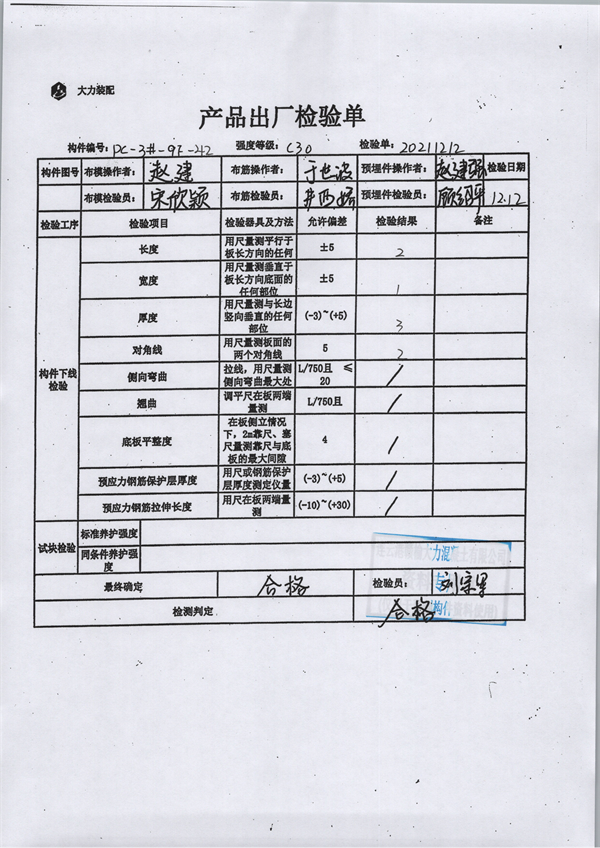 大力装配
产品出厂检验单
构件编号: PC-3#-9F-242 强度等级: C30 检验单: 20211212
构件图号 布模操作者: 赵建 布筋操作者: 于世波 预埋件操作者: 赵建强 检验日期
布模检验员: 宋欣颖 布筋检验员: 预埋件检验员: 12.12
检验工序 检验项目 检验器具及方法 允许偏差 检验结果 备注
构件下线检验
长度 用尺量测平行于板长方向的任何 ±5 2
宽度 用尺量测垂直于板长方向底面的任何部位 ±5 1
厚度 用尺量测与长边竖向垂直的任何部位 (-3)~(+5) 3
对角线 用尺量测板面的两个对角线 5 2
侧向弯曲 拉线，用尺量测侧向弯曲最大处 L/750且 ≤20 /
翘曲 调平尺在板两端量测 L/750且 /
底板平整度 在板侧立情况下，2m靠尺、塞尺量测靠尺与底板的最大间隙 4 /
预应力钢筋保护层厚度 用尺或钢筋保护层厚度测定仪量 (-3)~(+5) /
预应力钢筋拉伸长度 用尺在板两端量测 (-10)~(+30) /
试块检验 标准养护强度
同条件养护强度
最终确定 合格 检验员:
检测判定 合格